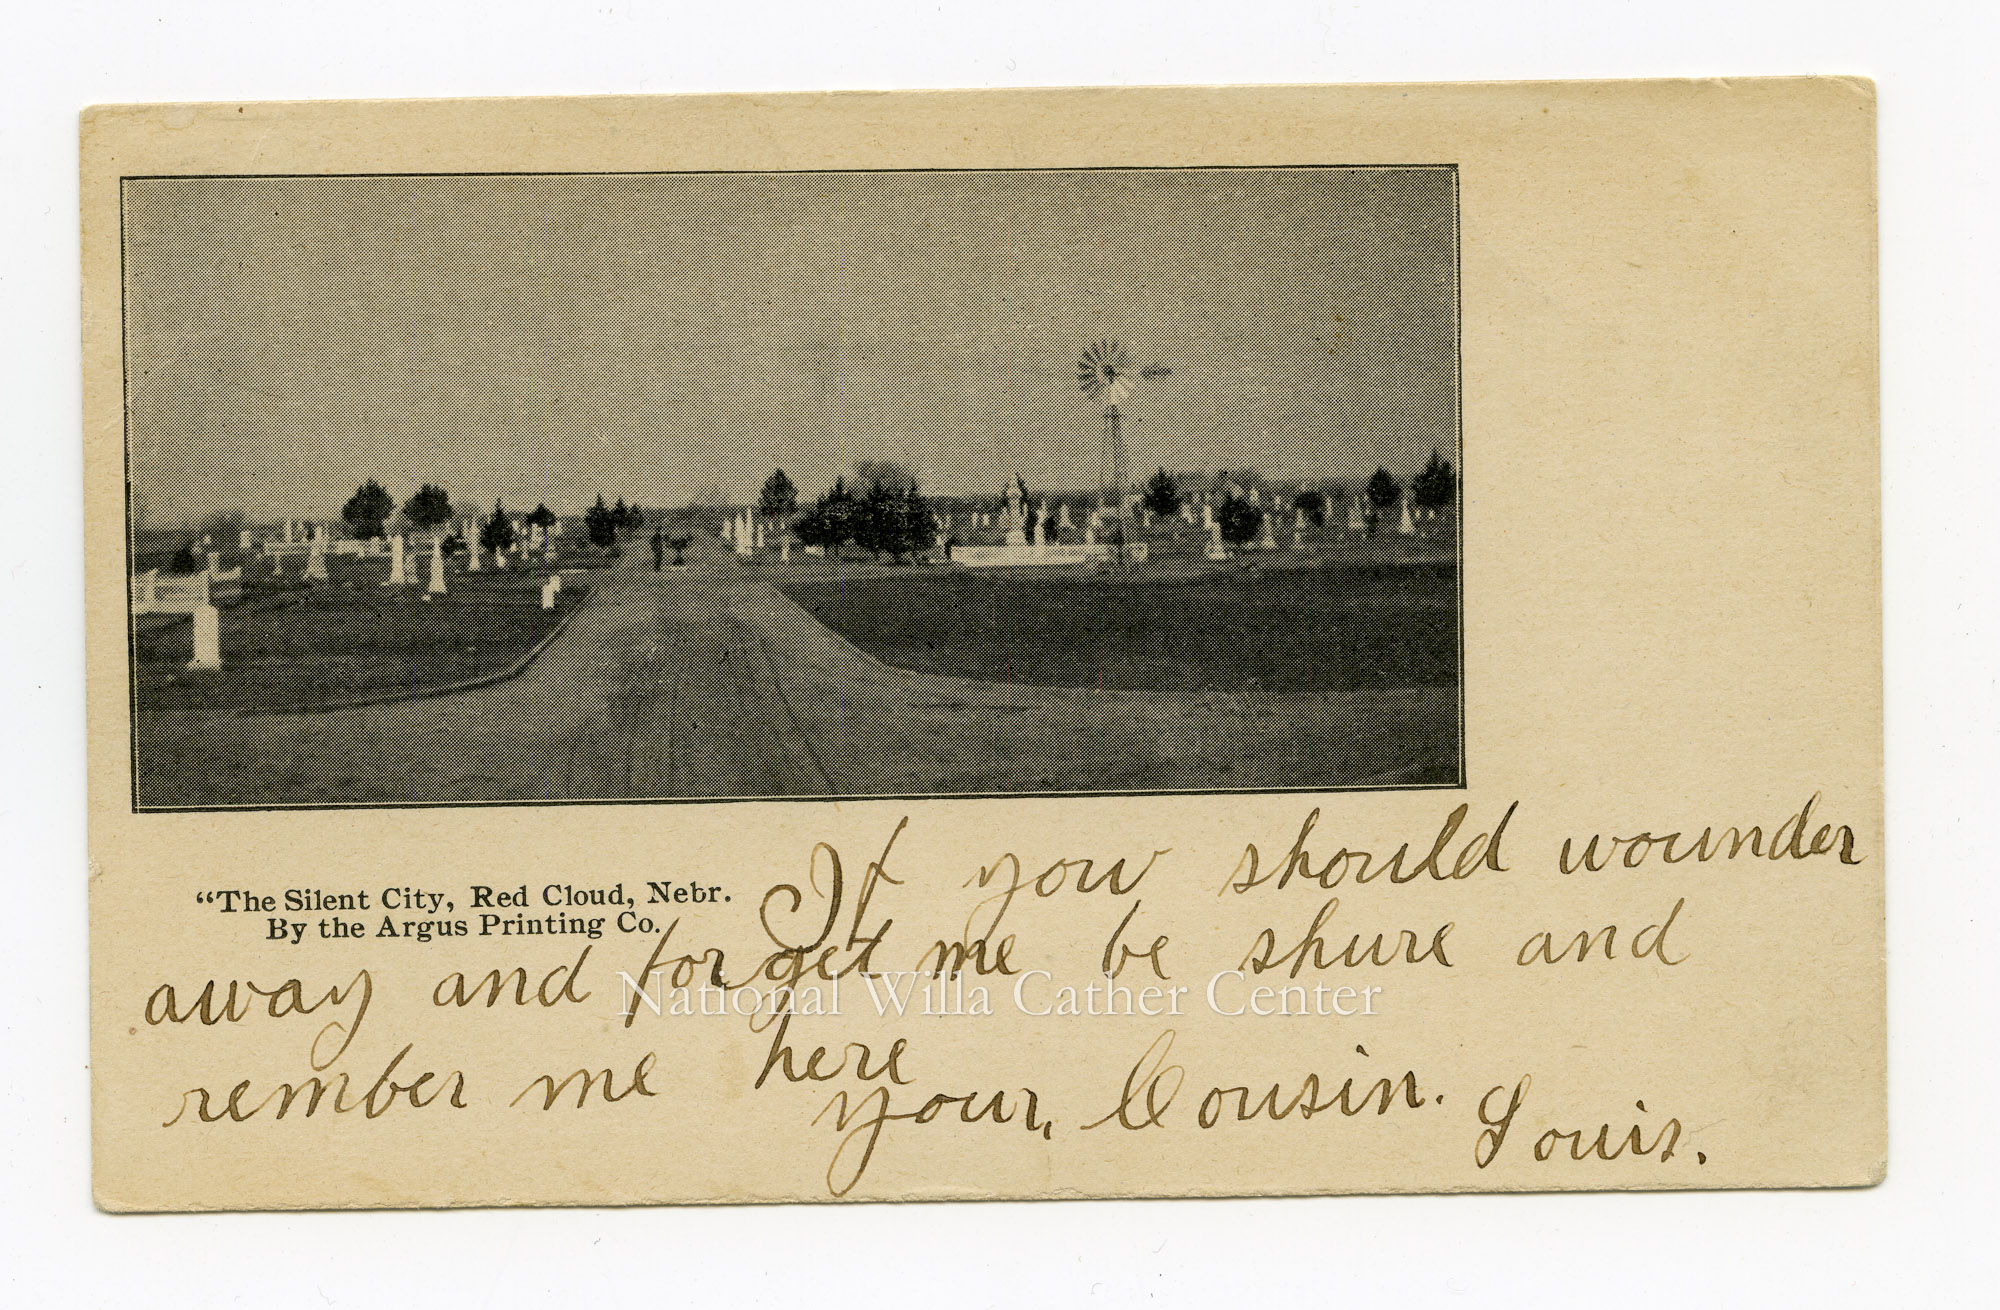 “The Silent City, Red Cloud, Nebr.
By the Argus Printing Co.
If you should wounder
away and forget me be shure and
rember me here
your, Cousin.
Louis.
National Willa Cather Center